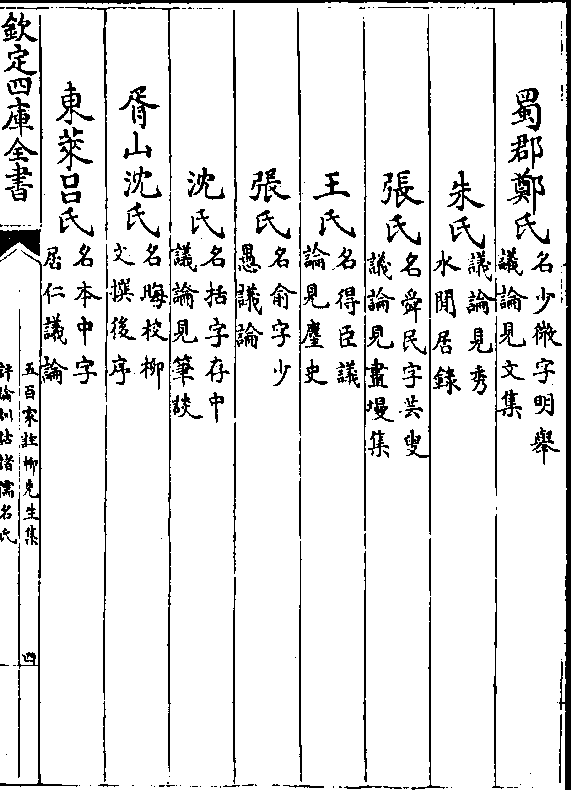 蜀郡鄭氏名少微字明舉議論見文集
朱氏議論見秀水閒居錄
張氏名舜民字芸叟議論見畫墁集
王氏名得臣議論見麈史
張氏名俞字少愚議論
沈氏名括字存中議論見筆談
胥山沈氏名晦校柳文撰後序
東萊呂氏名本中字居仁議論
欽定四庫全書
五百家註柳先生集
評論訓詁諸儒名氏
四